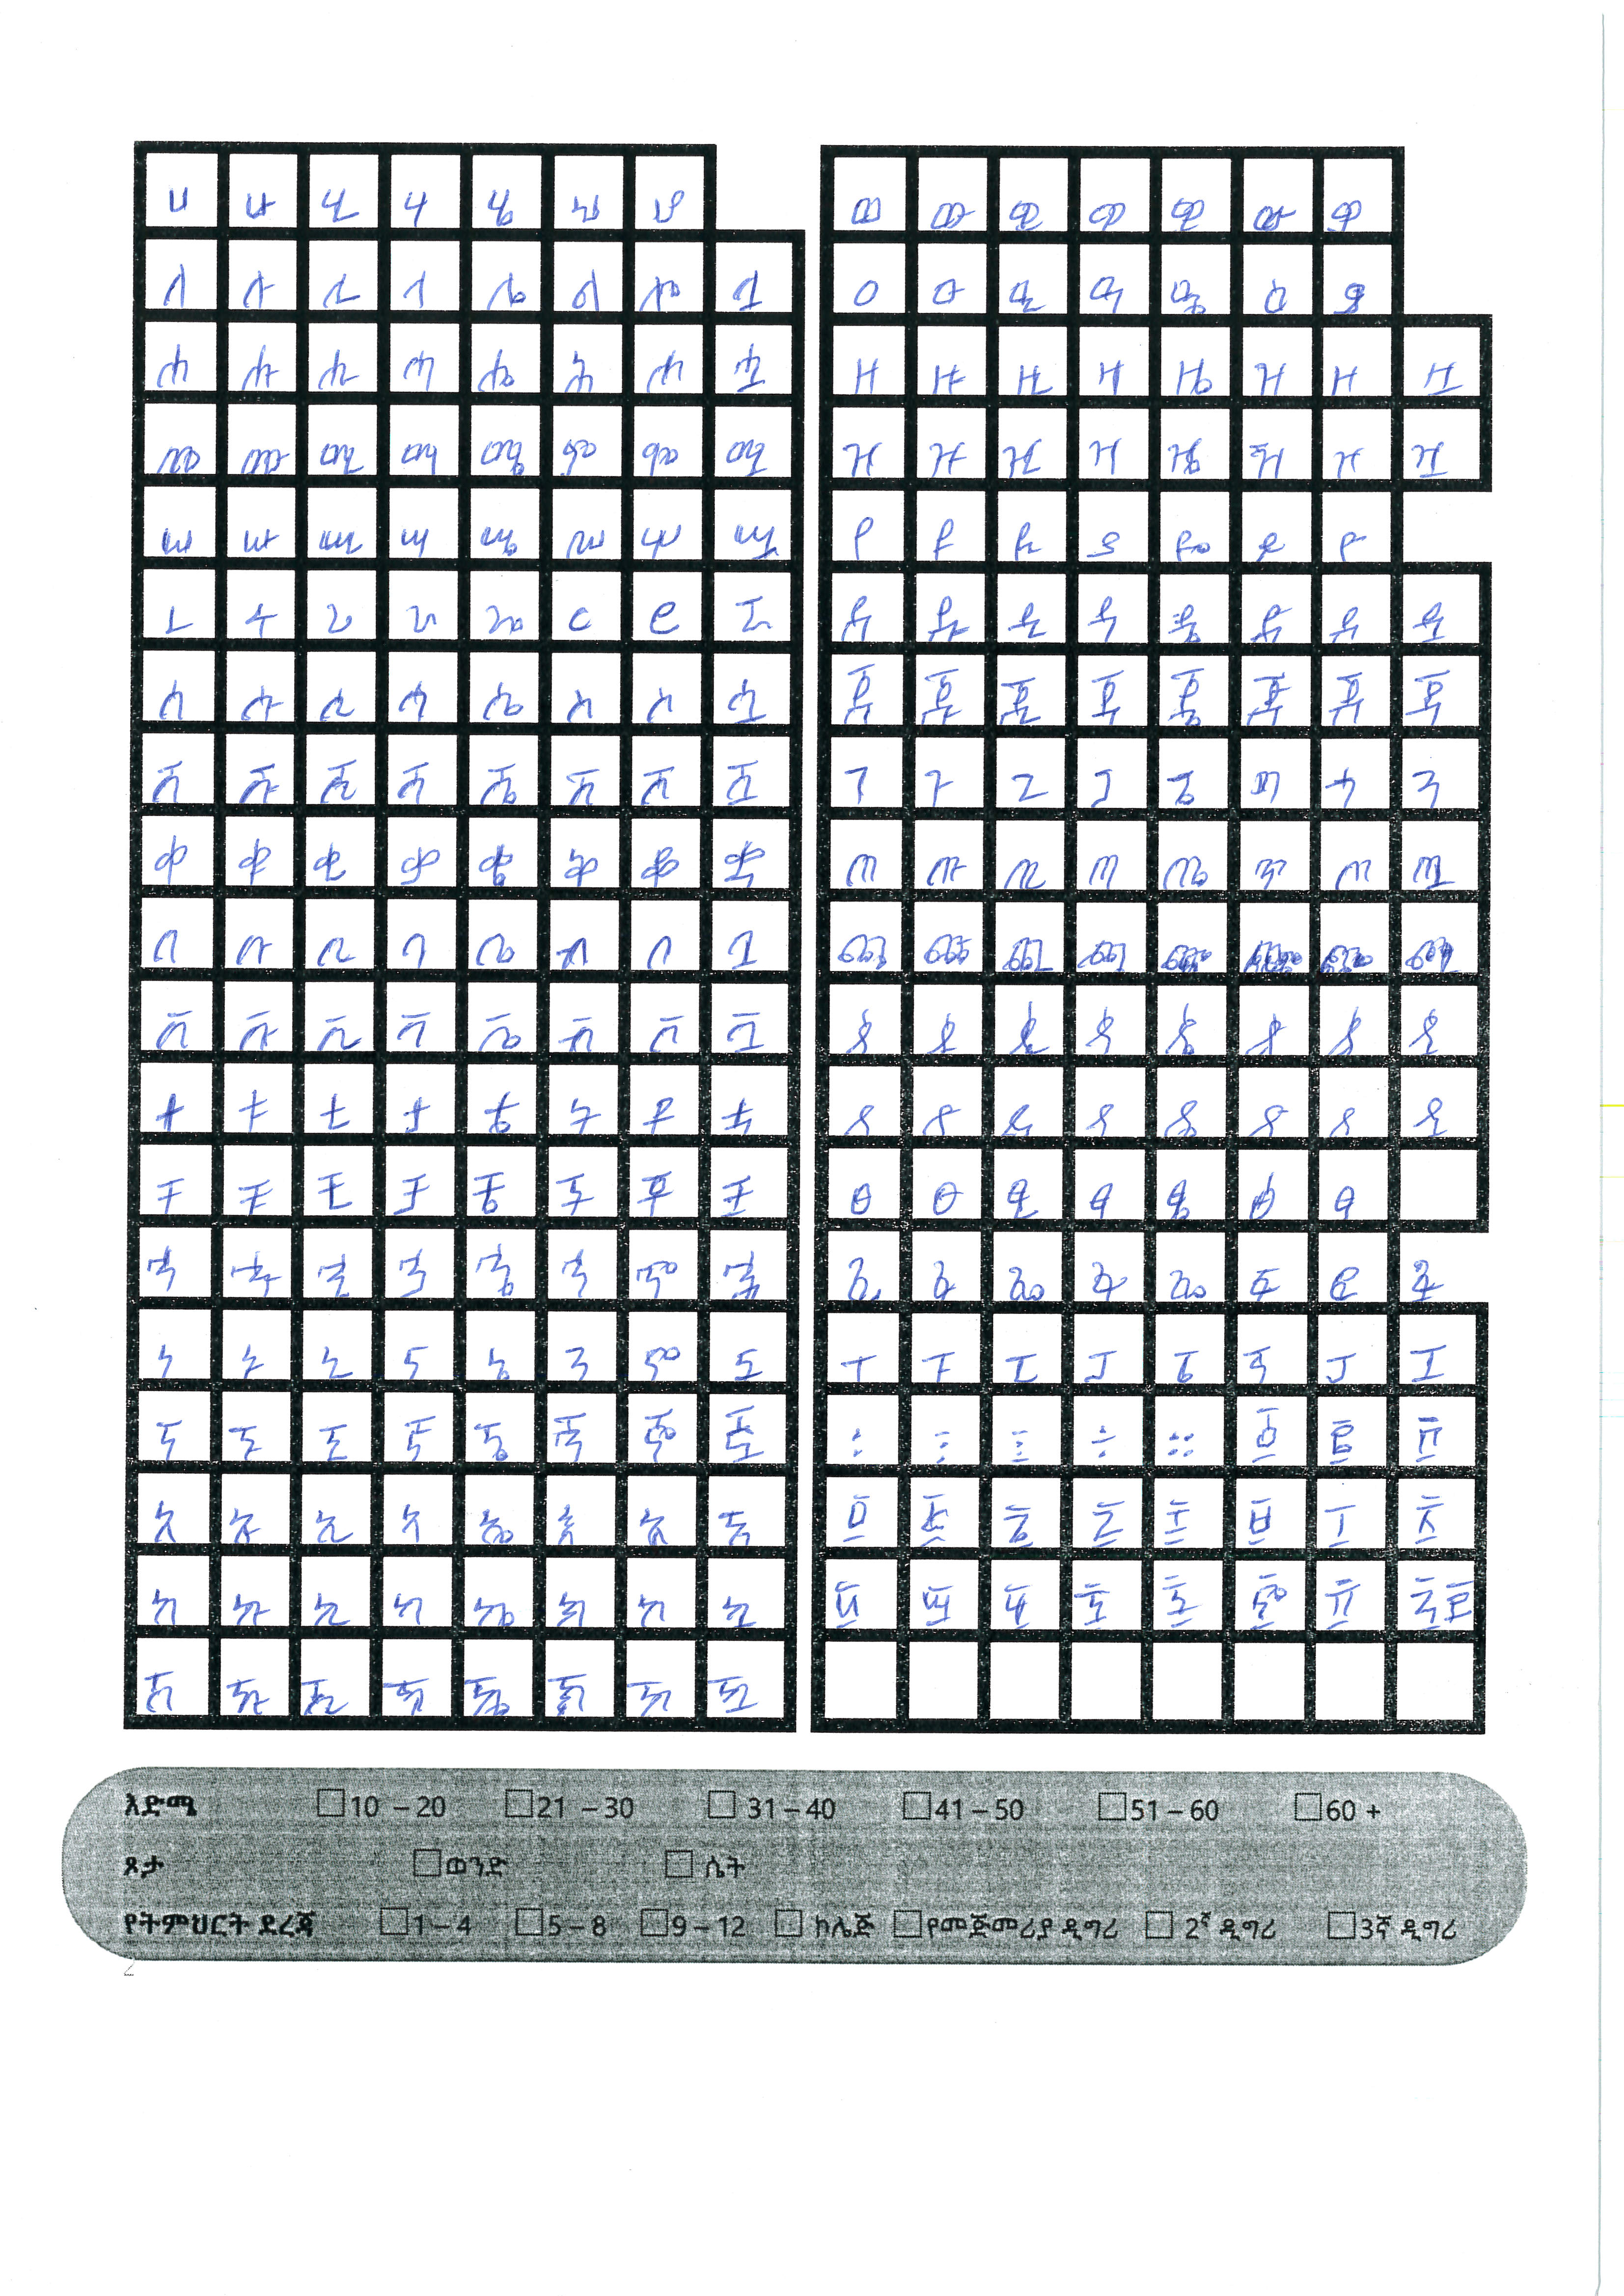 ሀ ሁ ሂ ሃ ሄ ህ ሆ
ለ ሉ ሊ ላ ሌ ል ሎ ሏ
ሐ ሑ ሒ ሓ ሔ ሕ ሖ ሗ
መ ሙ ሚ ማ ሜ ም ሞ ሟ
ሠ ሡ ሢ ሣ ሤ ሥ ሦ ሧ
ረ ሩ ሪ ራ ሬ ር ሮ ሯ
ሰ ሱ ሲ ሳ ሴ ስ ሶ ሷ
ሸ ሹ ሺ ሻ ሼ ሽ ሾ ሿ
ቀ ቁ ቂ ቃ ቄ ቅ ቆ ቋ
በ ቡ ቢ ባ ቤ ብ ቦ ቧ
ቨ ቩ ቪ ቫ ቬ ቭ ቮ ቯ
ተ ቱ ቲ ታ ቴ ት ቶ ቷ
ቸ ቹ ቺ ቻ ቼ ች ቾ ቿ
ኀ ኁ ኂ ኃ ኄ ኅ ኆ ኋ
ነ ኑ ኒ ና ኔ ን ኖ ኗ
ኘ ኙ ኚ ኛ ኜ ኝ ኞ ኟ
አ ኡ ኢ ኣ ኤ እ ኦ ኧ
ከ ኩ ኪ ካ ኬ ክ ኮ ኳ
ኸ ኹ ኺ ኻ ኼ ኽ ኾ ዃ
ወ ዉ ዊ ዋ ዌ ው ዎ
ዐ ዑ ዒ ዓ ዔ ዕ ዖ
ዘ ዙ ዚ ዛ ዜ ዝ ዞ ዟ
ዠ ዡ ዢ ዣ ዤ ዥ ዦ ዧ
የ ዩ ዪ ያ ዬ ይ ዮ
ደ ዱ ዲ ዳ ዴ ድ ዶ ዷ
ጀ ጁ ጂ ጃ ጄ ጅ ጆ ጇ
ገ ጉ ጊ ጋ ጌ ግ ጎ ጓ
ጠ ጡ ጢ ጣ ጤ ጥ ጦ ጧ
ጨ ጩ ጪ ጫ ጬ ጭ ጮ ጯ
ጰ ጱ ጲ ጳ ጴ ጵ ጶ ጷ
ጸ ጹ ጺ ጻ ጼ ጽ ጾ ጿ
ፀ ፁ ፂ ፃ ፄ ፅ ፆ
ፈ ፉ ፊ ፋ ፌ ፍ ፎ ፏ
ፐ ፑ ፒ ፓ ፔ ፕ ፖ ፗ
፡ ፣ ፤ ÷ ፡፡ ፩ ፪ ፫
፬ ፭ ፮ ፯ ፰ ፱ ፲ ፳
፴ ፵ ፶ ፷ ፸ ፹ ፺ ፻
እድሜ 10 – 20 21 – 30 31 – 40 41 – 50 51 – 60 60 +
ጾታ ወንድ ሴት
የትምህርት ደረጃ 1 – 4 5 – 8 9 – 12 ኮሌጅ የመጀመሪያ ዲግሪ 2ኛ ዲግሪ 3ኛ ዲግሪ